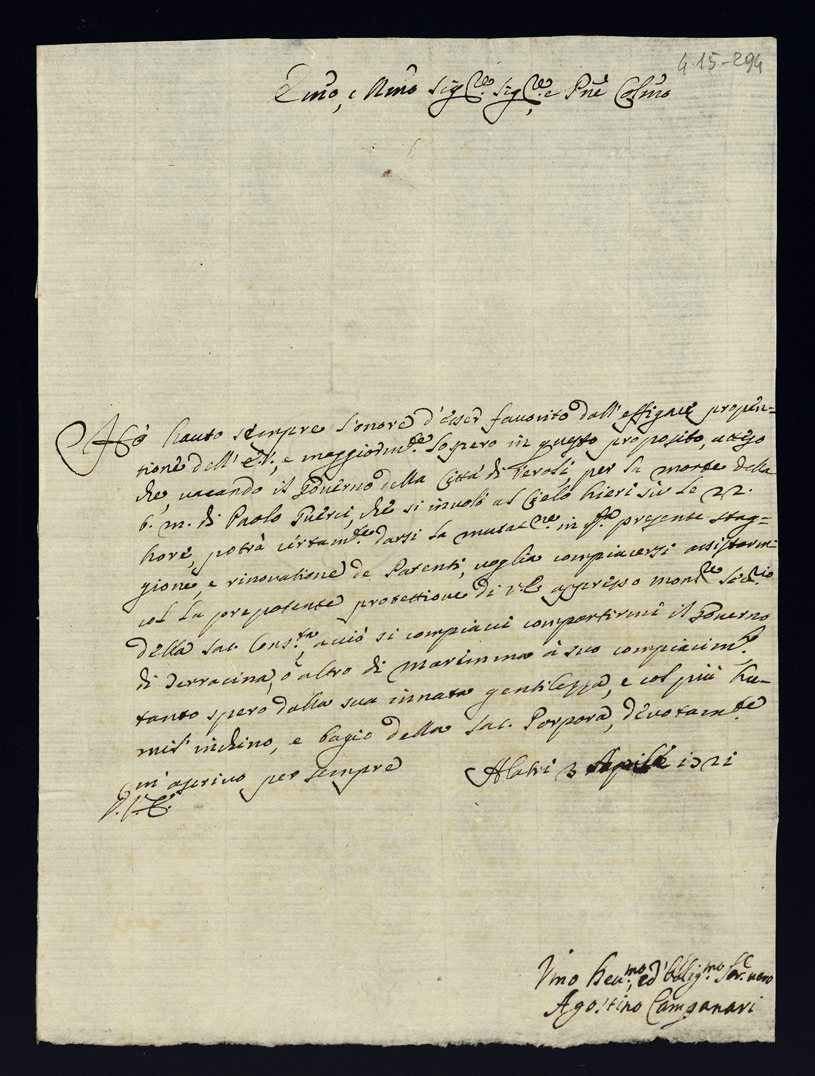 4.15-294
Emo, e Rmo Sig.re Sig.re e Pne Colmo
Hò hauto sempre l'onore d'esser favorito dall'effigaci propen=
tione dell' E.V., e maggiorm.te lo spero in questo proposito, atteso
che, vacando il Governo della Città di Veroli per la morte della
b. m. di Paolo Guerci, che si involò al Cielo hieri sù le 22.
hore, potrà certam.te darsi la mutat.ne in q.ta presente stag=
gione, e rinovatione de Patenti, voglia compiacersi assistermi
col la prepotente protettione di V.E. appresso mons.re Seg.rio
della Sac. Cons.ta, acciò si compiacci compartirmi il Governo
di Terracina, ò altro di marimma à suo compiacim.to
tanto spero dalla sua innata gentilezza, e col più hu=
mil' inchino, e bagio della Sac. Porpora, devotam.te
m'ascrivo per sempre
D. V. E. Alatri 3 Aprile 1721
Vmo Deu.mo, ed Obblig.mo Ser. vero
Agostino Campanari